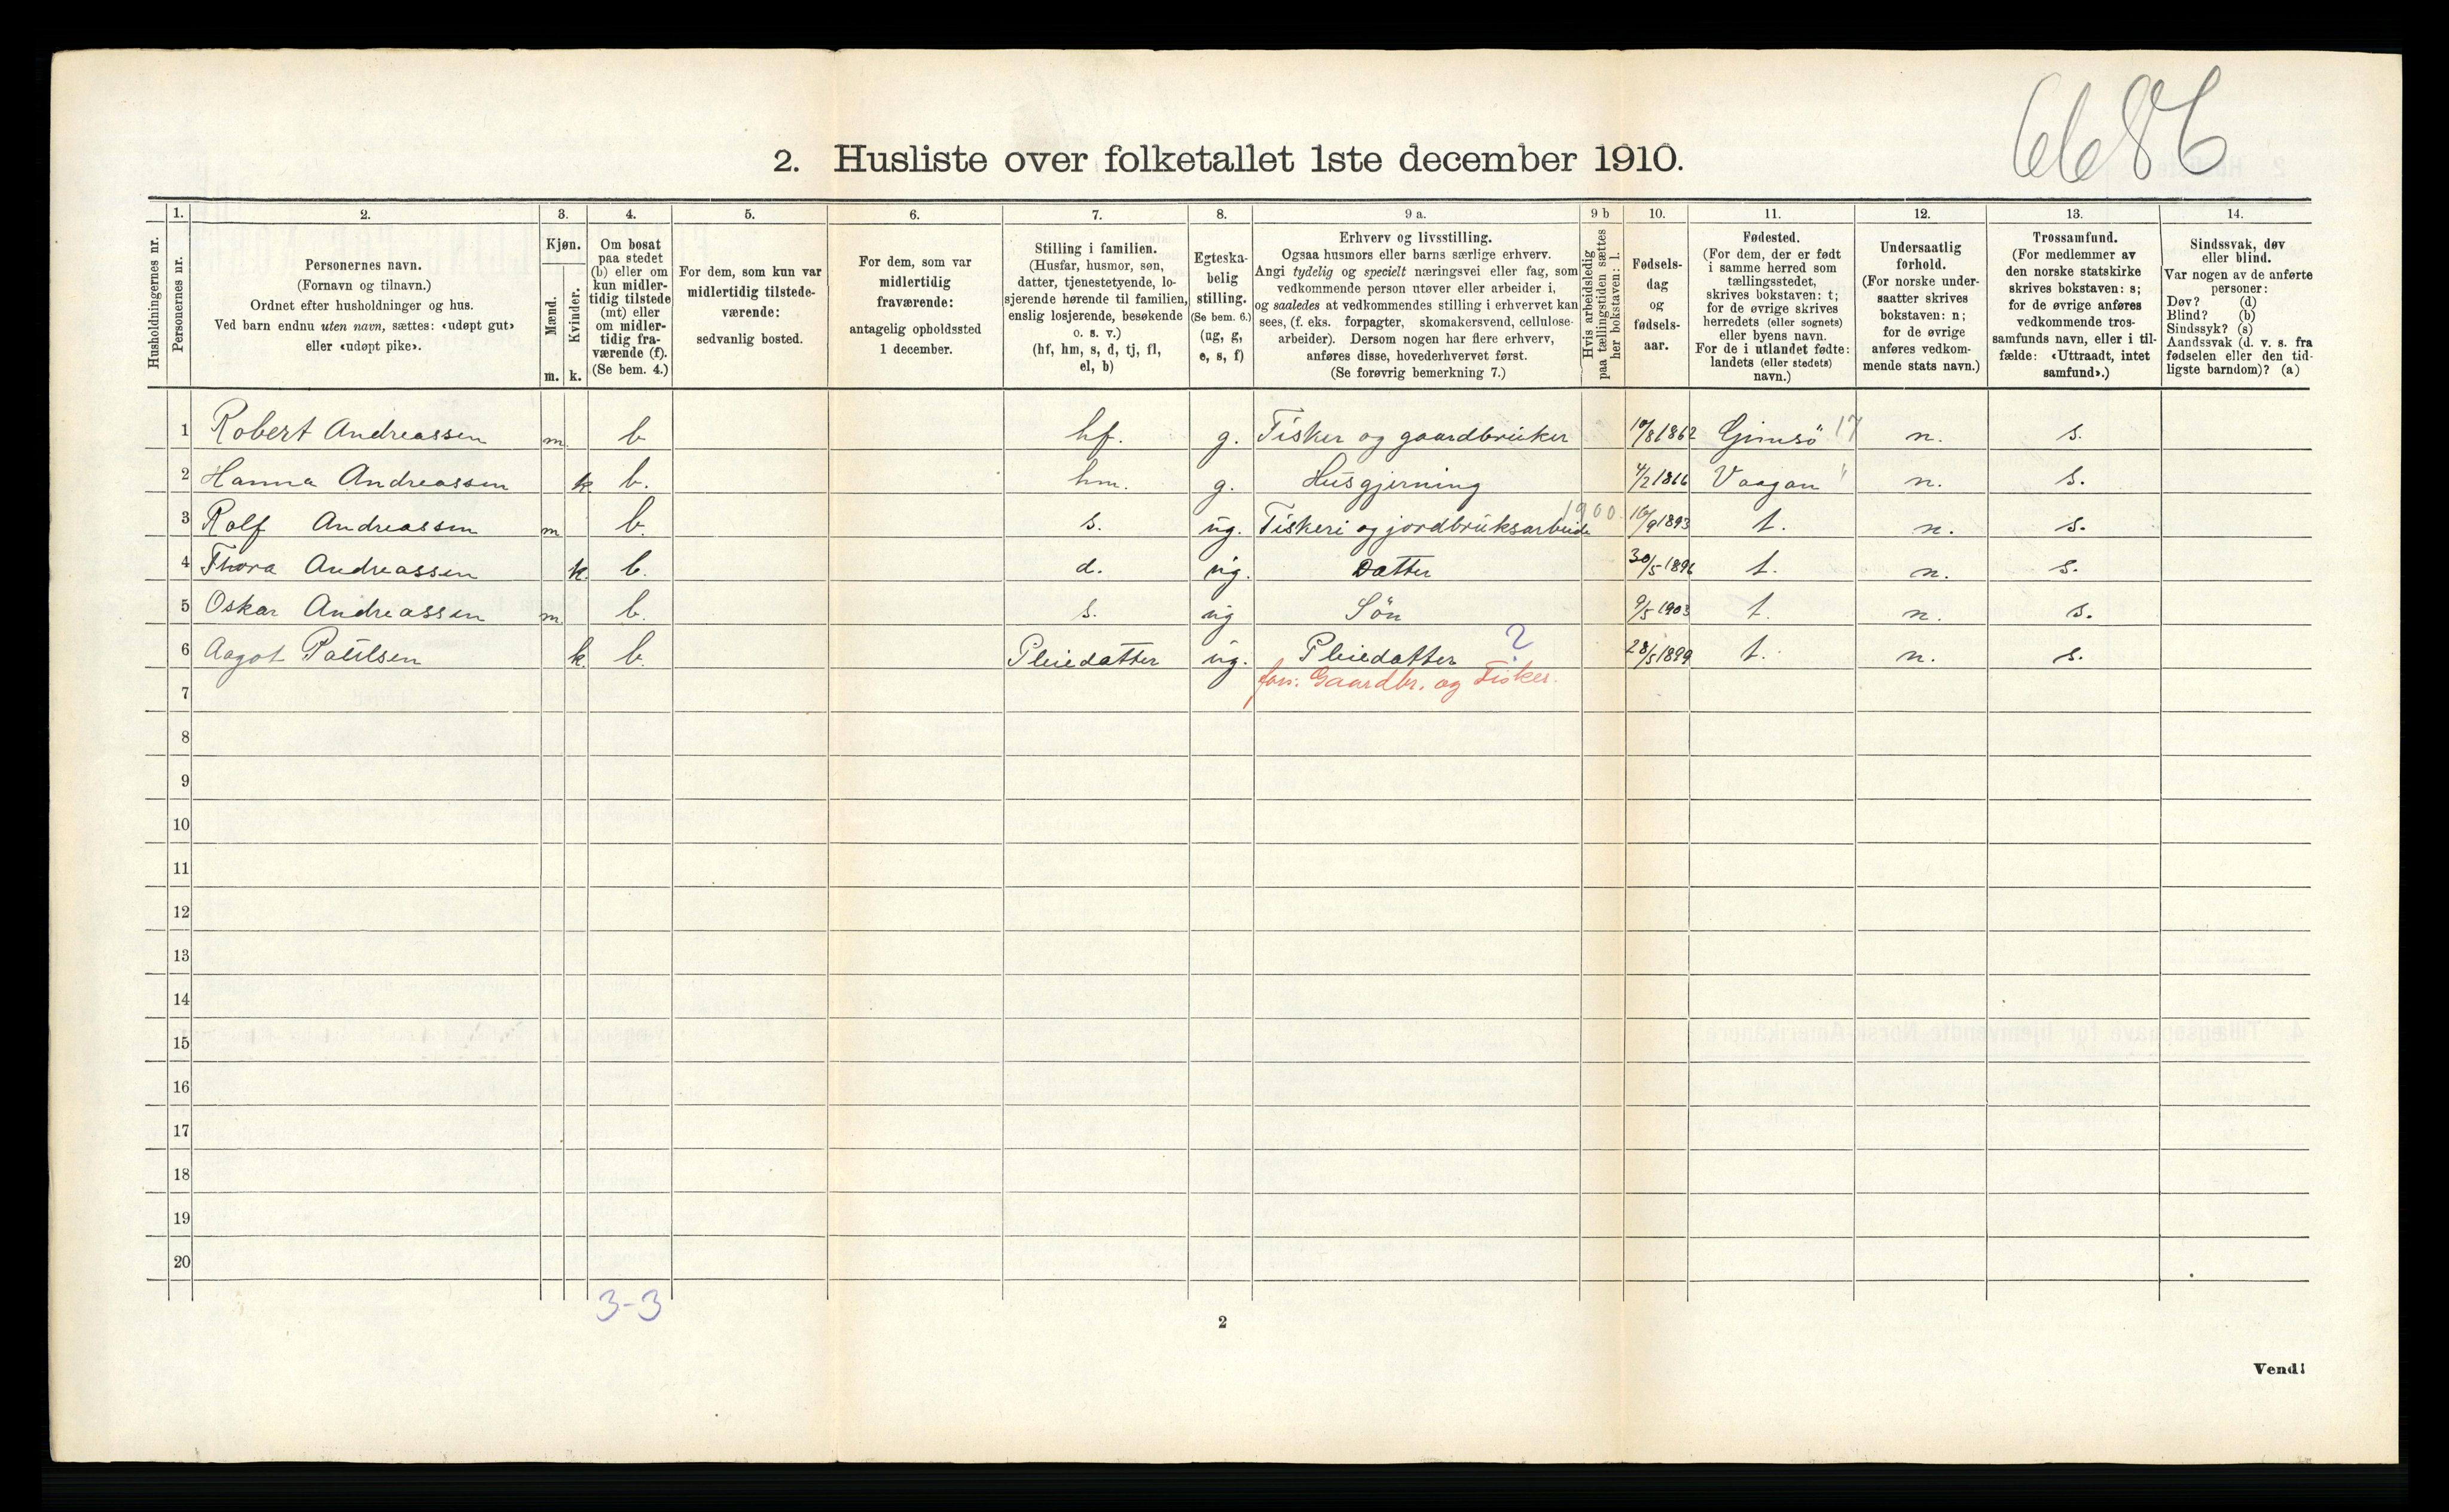 6686
2. Husliste over folketallet 1ste december 1910.
Husholdningernes nr.
1.
Personernes nr.
2.
Personernes navn.
(Fornavn og tilnavn.)
Ordnet efter husholdninger og hus.
Ved barn endnu uten navn, sættes: «udøpt gut»
eller «udøpt pike».
3.
Kjøn.
Mænd.
Kvinder.
m. k.
4.
Om bosat
paa stedet
(b) eller om
kun midler-
tidig tilstede
(mt) eller
om midler-
tidig fra-
værende (f).
(Se bem. 4.)
5.
For dem, som kun var
midlertidig tilstede-
værende:
sedvanlig bosted.
6.
For dem, som var
midlertidig
fraværende:
antagelig opholdssted
1 december.
7.
Stilling i familien.
(Husfar, husmor, søn,
datter, tjenestetyende, lo-
sjerende hørende til familien,
enslig losjerende, besøkende
o. s. v.)
(hf, hm, s, d, tj, fl,
el, b)
8.
Egteska-
belig
stilling.
(Se bem. 6.)
(ug, g,
e, s, f)
9 a.
Erhverv og livsstilling.
Ogsaa husmors eller barns særlige erhverv.
Angi tydelig og specielt næringsvei eller fag, som
vedkommende person utøver eller arbeider i,
og saaledes at vedkommendes stilling i erhvervet kan
sees, (f. eks. forpagter, skomakersvend, cellulose-
arbeider). Dersom nogen har flere erhverv,
anføres disse, hovederhvervet først.
(Se forøvrig bemerkning 7.)
9 b
Hvis arbeidsledig
paa tællingstiden sættes
her bokstaven: l.
10.
Fødsels-
dag
og
fødsels-
aar.
11.
Fødested.
(For dem, der er født
i samme herred som
tællingsstedet,
skrives bokstaven: t;
for de øvrige skrives
herredets (eller sognets)
eller byens navn.
For de i utlandet fødte:
landets (eller stedets)
navn.)
12.
Undersaatlig
forhold.
(For norske under-
saatter skrives
bokstaven: n;
for de øvrige
anføres vedkom-
mende stats navn.)
13.
Trossamfund.
(For medlemmer av
den norske statskirke
skrives bokstaven: s;
for de øvrige anføres
vedkommende tros-
samfunds navn, eller i til-
fælde: «Uttraadt, intet
samfund».)
14.
Sindssvak, døv
eller blind.
Var nogen av de anførte
personer:
Døv? (d)
Blind? (b)
Sindssyk? (s)
Aandssvak (d. v. s. fra
fødselen eller den tid-
ligste barndom)? (a)
1 Robert Andreassen m. b hf. g. Fisker og gaardbruker 10/8 1862 Gimsö 17 n. s.
2 Hanna Andreassen k b. hm. g. Husgjerning 4/2 1866 Vaagan " n. s.
3 Rolf Andreassen m b. s. ug. Fiskeri og jordbruksarbeide 1900. 16/9 1893 t. n. s.
4 Thora Andreassen k. b. d. ug. Datter 30/5 1896 t. n. s.
5 Oskar Andreassen m b. s. ug Sön 9/5 1903 t. n. s.
6 Aagot Paulsen k. b. Pleiedatter ug. Pleiedatter ? 28/5 1899 t. n. s.
7 fors: Gaardbr. og Fisker.
8
9
10
11
12
13
14
15
16
17
18
19
20
3-3
2
Vend!